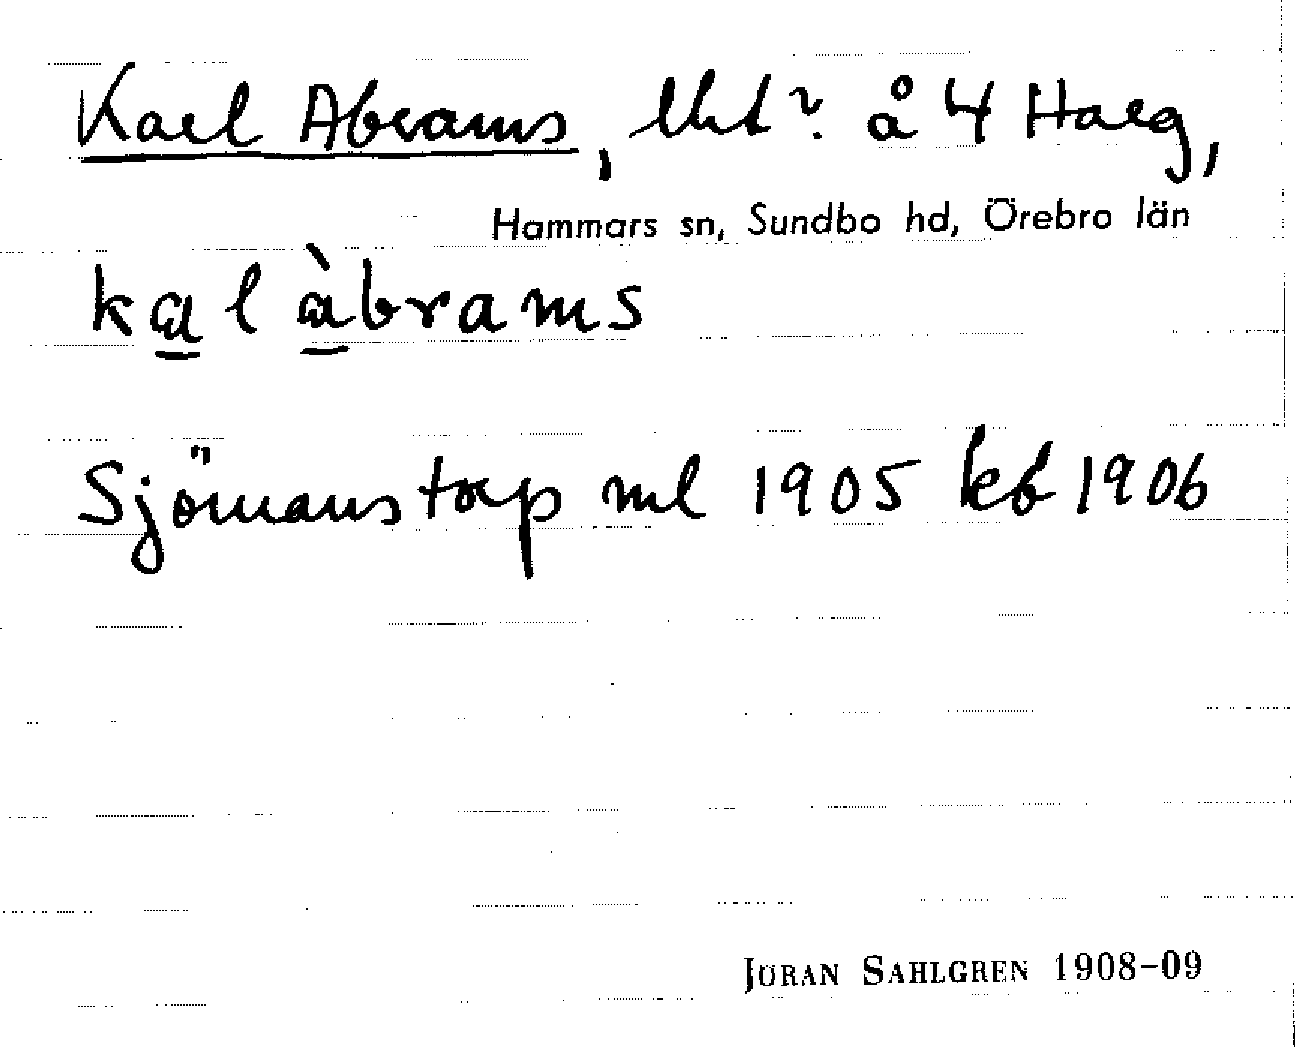 Karl Abrams, lht? å 4 Harg,
Hammars sn, Sundbo hd, Örebro län
kal àbrams
Sjömanstorp ml 1905 kb 1906
JÖRAN SAHLGREN 1908-09